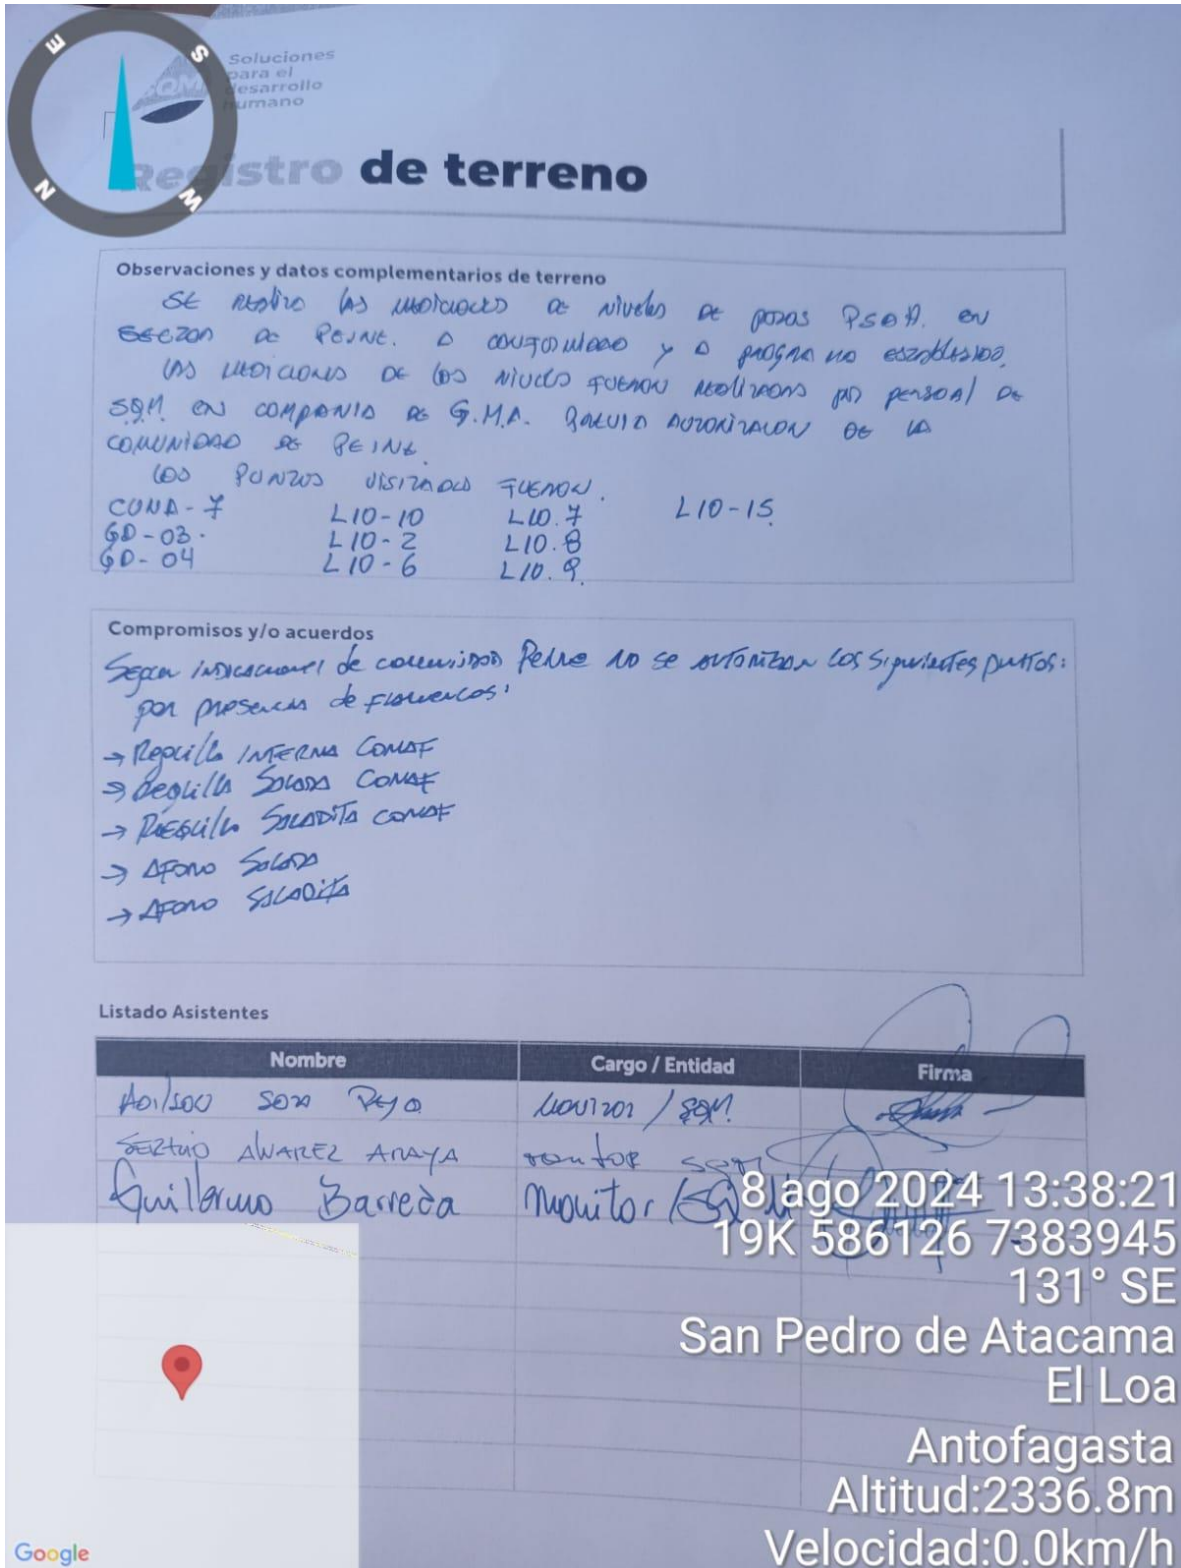 E
S
N
W
SQM
Soluciones
para el
desarrollo
humano
Registro de terreno
Observaciones y datos complementarios de terreno
SE las mediciones de niveles de pozos PSDA. en
sector de Peine. a y a programa establesido.
las mediciones de los niveles fueron realizadas por personal de
SQM. en compania de G.M.A. previa autorizacion de la
comunidad de Peine.
los punzos visitados fueron.
CUNA-7 L10-10 L10.7 L10-15
GD-03. L10-2 L10.8
GD-04 L10-6 L10.9.
Compromisos y/o acuerdos
Segun indicaciones de comunidad Peine no se autorizan los siguientes puntos:
por presencia de flamencos:
→ Reglilla INTERNA CONAF
→ Reglilla Salada CONAF
→ Reglilla Saladita CONAF
→ Aforo Salada
→ Aforo Saladita
Listado Asistentes
Nombre Cargo / Entidad Firma
monitor / SQM.
SERGIO ALVAREZ ARAYA monitor SQM
Guillermo Barreda Monitor / SQM
8 ago 2024 13:38:21
19K 586126 7383945
131° SE
San Pedro de Atacama
El Loa
Antofagasta
Altitud:2336.8m
Velocidad:0.0km/h
Google